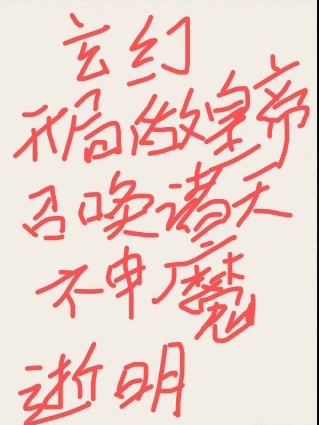 玄幻
开局做皇帝
召唤诸天
不申魔
逝明